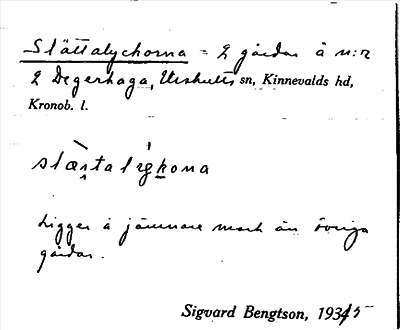 Slättalyckorna = 2 gårdar å n:r
2 Degerhaga, Urshults sn, Kinnevalds hd,
Kronob. l.
slæntalykona
Ligger å jämnare mark än övriga
gårdar.
Sigvard Bengtson, 1935